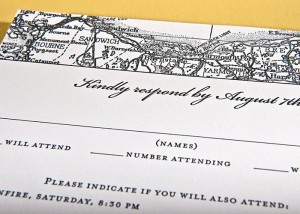 Sandwich
BOURNE
SANDWICH
YARMOUTH
Kindly respond by August 7th
(NAMES)
WILL ATTEND
NUMBER ATTENDING
PLEASE INDICATE IF YOU WILL ALSO ATTEND:
NFIRE, SATURDAY, 8:30 PM